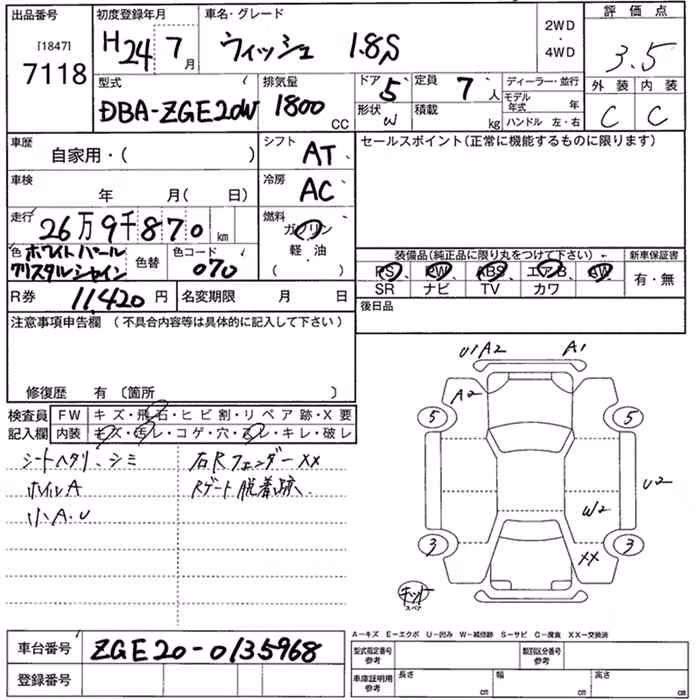 出品番号
[1847]
7118
初度登録年月
H 24 7 月
車名・グレード
ウィッシュ 1.8S
2WD
・
4WD
評価点
3.5
外装 内装
C C
型式
DBA-ZGE20W
排気量
1800 CC
ドア 5
形状 W
定員 7 人
積載 kg
ディーラー・並行
モデル年式 年
ハンドル 左・右
車歴
自家用・( )
シフト
AT
車検
年 月( 日)
冷房
AC
走行
26万9千870 km
燃料
ガソリン
・
軽・油
( )
色 ホワイトパール
クリスタルシャイン
色替
色コード
070
R券 11,420 円
名変期限 月 日
セールスポイント(正常に機能するものに限ります)
装備品(純正品に限り丸をつけて下さい)
新車保証書
PS PW ABS エアB AW
SR ナビ TV カワ
有・無
後日品
注意事項申告欄 (不具合内容等は具体的に記入して下さい)
修復歴 有 〔箇所 〕
検査員
記入欄
FW キズ・飛石・ヒビ割・リペア跡・X要
内装 キズ・汚レ・コゲ・穴・スレ・キレ・破レ
シートヘタリ、シミ
ホイルA
小A.U
右Rフェンダー XX
Rゲート脱着跡、
U1 A2 A1
A2
5 5
U2
W2
3 3
XX
キット
スペア
A-キズ E-エクボ U-凹み W-補修跡 S-サビ C-腐食 XX-交換済
車台番号 ZGE20-0135968
登録番号
型式指定番号
参考
類別区分番号
参考
車庫証明用
参考
長さ cm
幅 cm
高さ cm